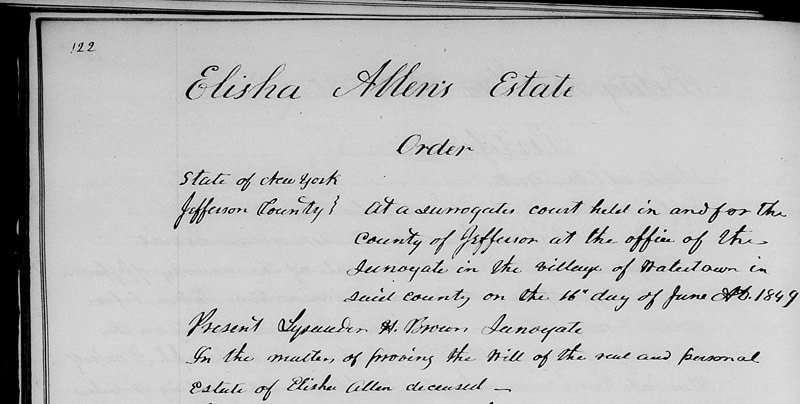 122
Elisha Allen's Estate
Order
State of New York
Jefferson County } At a surrogates court held in and for the
county of Jefferson at the office of the
Surrogate in the village of Watertown in
said county on the 16" day of June AD. 1849
Present Lysander H. Brown Surrogate
In the matter of proving the Will of the real and personal
Estate of Elisha Allen deceased —